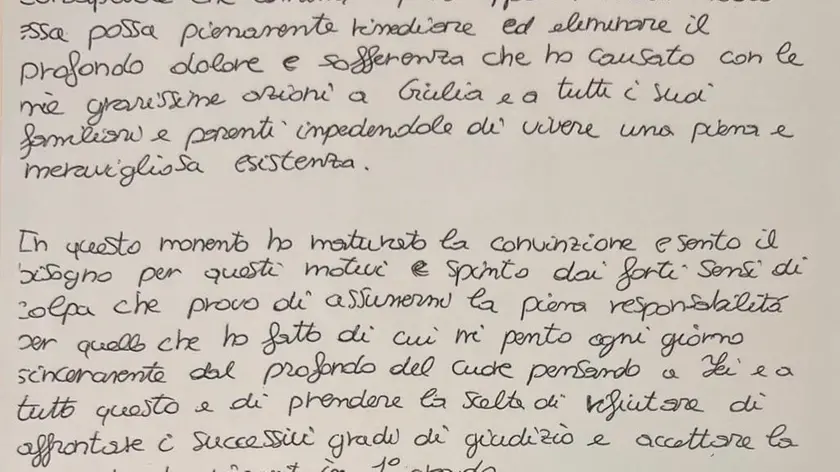 essa possa pienamente rimediare ed eliminare il
profondo dolore e sofferenza che ho causato con le
mie gravissime azioni a Giulia e a tutti i suoi
familiari e parenti impedendole di vivere una piena e
meravigliosa esistenza.
In questo momento ho maturato la convinzione e sento il
bisogno per questi motivi e spinto dai forti sensi di
colpa che provo di assumermi la piena responsabilità
per quello che ho fatto di cui mi pento ogni giorno
sinceramente dal profondo del cuore pensando a lei e a
tutto questo e di prendere la scelta di rifiutare di
affrontare i successivi gradi di giudizio e accettare la
in 1°